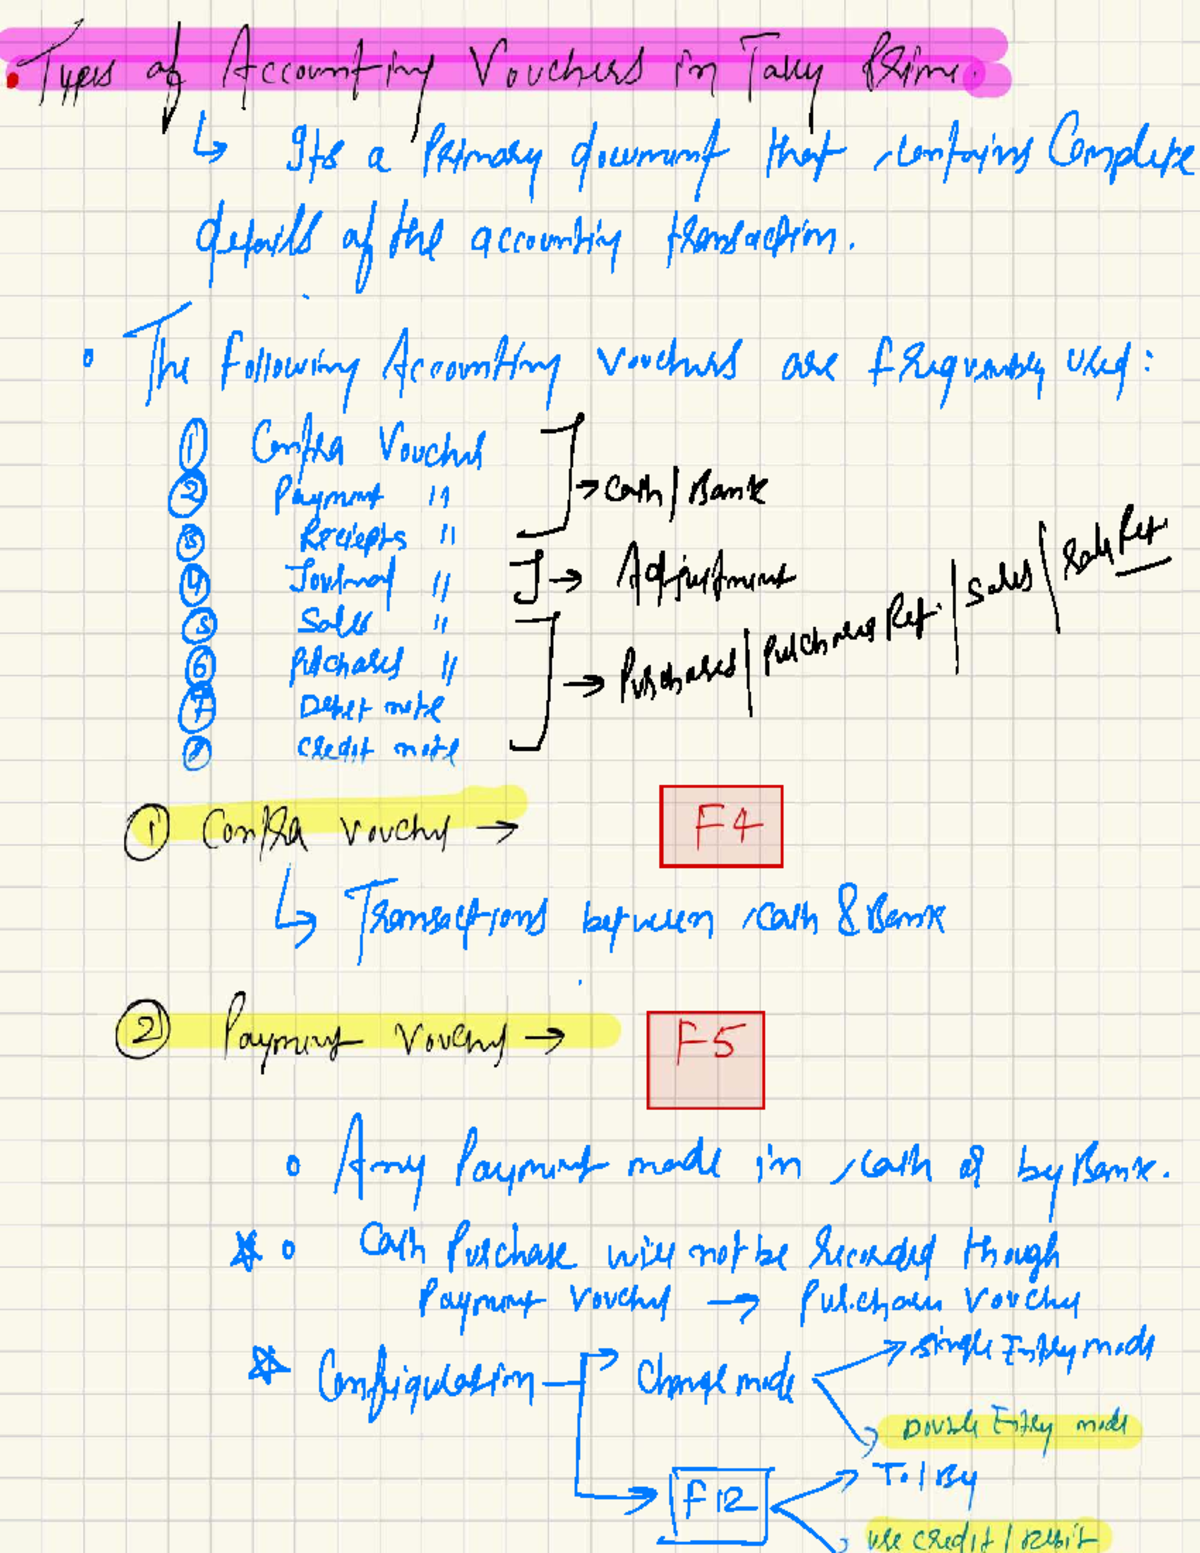 • Types of Accounting Vouchers in Tally Prime.
↳ Its a Primary document that contains Complete
details of the accounting transaction.
◦ The Following Accounting Vouchers are frequently used:
① Contra Voucher
② Payment "
③ Reciepts "
] → Cash / Bank
④ Journal "
] → Adjustment
⑤ Sales "
⑥ Purchases "
⑦ Debet note
⑧ credit note
] → Purchases / Purchases Ret. / Sales / Sales Ret
① Contra Voucher → F4
↳ Transactions between cash & Bank
② Payment Voucher → F5
◦ Any Payment made in cash or by Bank.
☆ ◦ Cash Purchase will not be recorded though
Payment Voucher → Purchase Voucher
☆ Configuration → Change mode → Single Entry mode
Double Entry mode
→ F12 → To / By
use credit / Debit